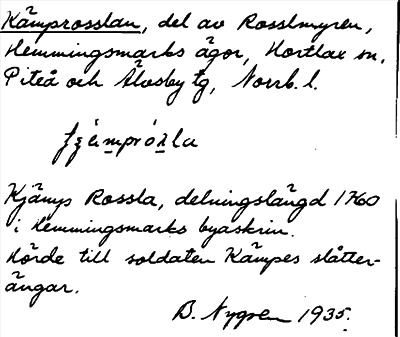 Kämprosslan, del av Rosslmyren,
Hemmingsmarks ägor, Hortlax sn,
Piteå och Älvsby tg, Norrb. l.
Kjämps Rossla, delningslängd 1760
i Hemmingsmarks byaskrin.
Hörde till soldaten Kämpes slåtter-
ängar.
B. Nygren 1935.